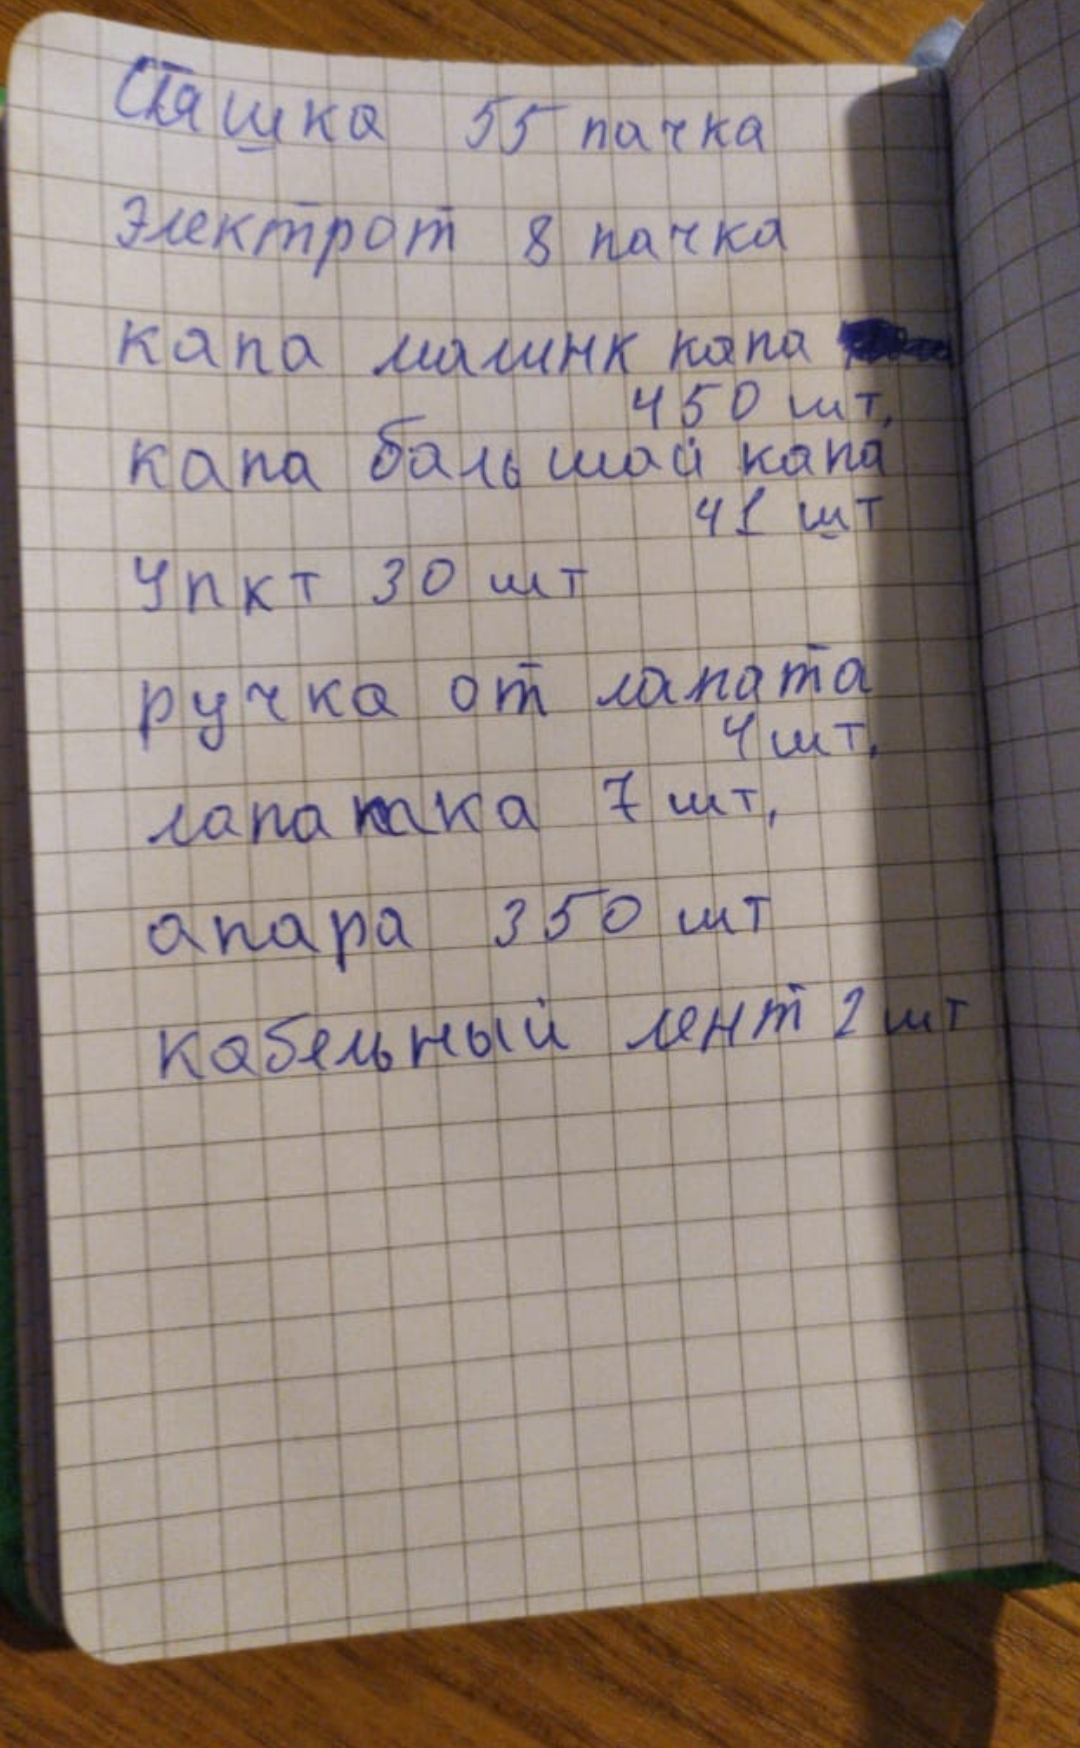 Сташка 55 пачка
Электрот 8 пачка
капа малинк капа
450 шт.
капа балшьой капа
41 шт
Упкт 30 шт
ручка от лапата
4 шт.
лапатка 7 шт.
апара 350 шт
кабельный лент 2 шт